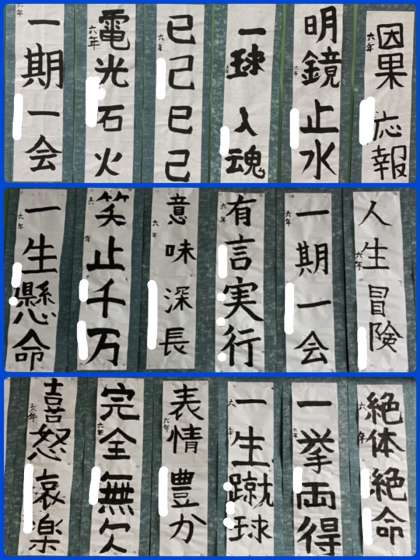 因果応報
六年
明鏡止水
一球入魂
六年
已己巳己
六年
電光石火
六年
一期一会
六年
人生冒険
六年
一期一会
六年
有言実行
六年
意味深長
六年
笑止千万
一生懸命
六年
絶体絶命
六年
一挙両得
一生蹴球
表情豊か
六年
完全無欠
六年
喜怒哀楽
六年